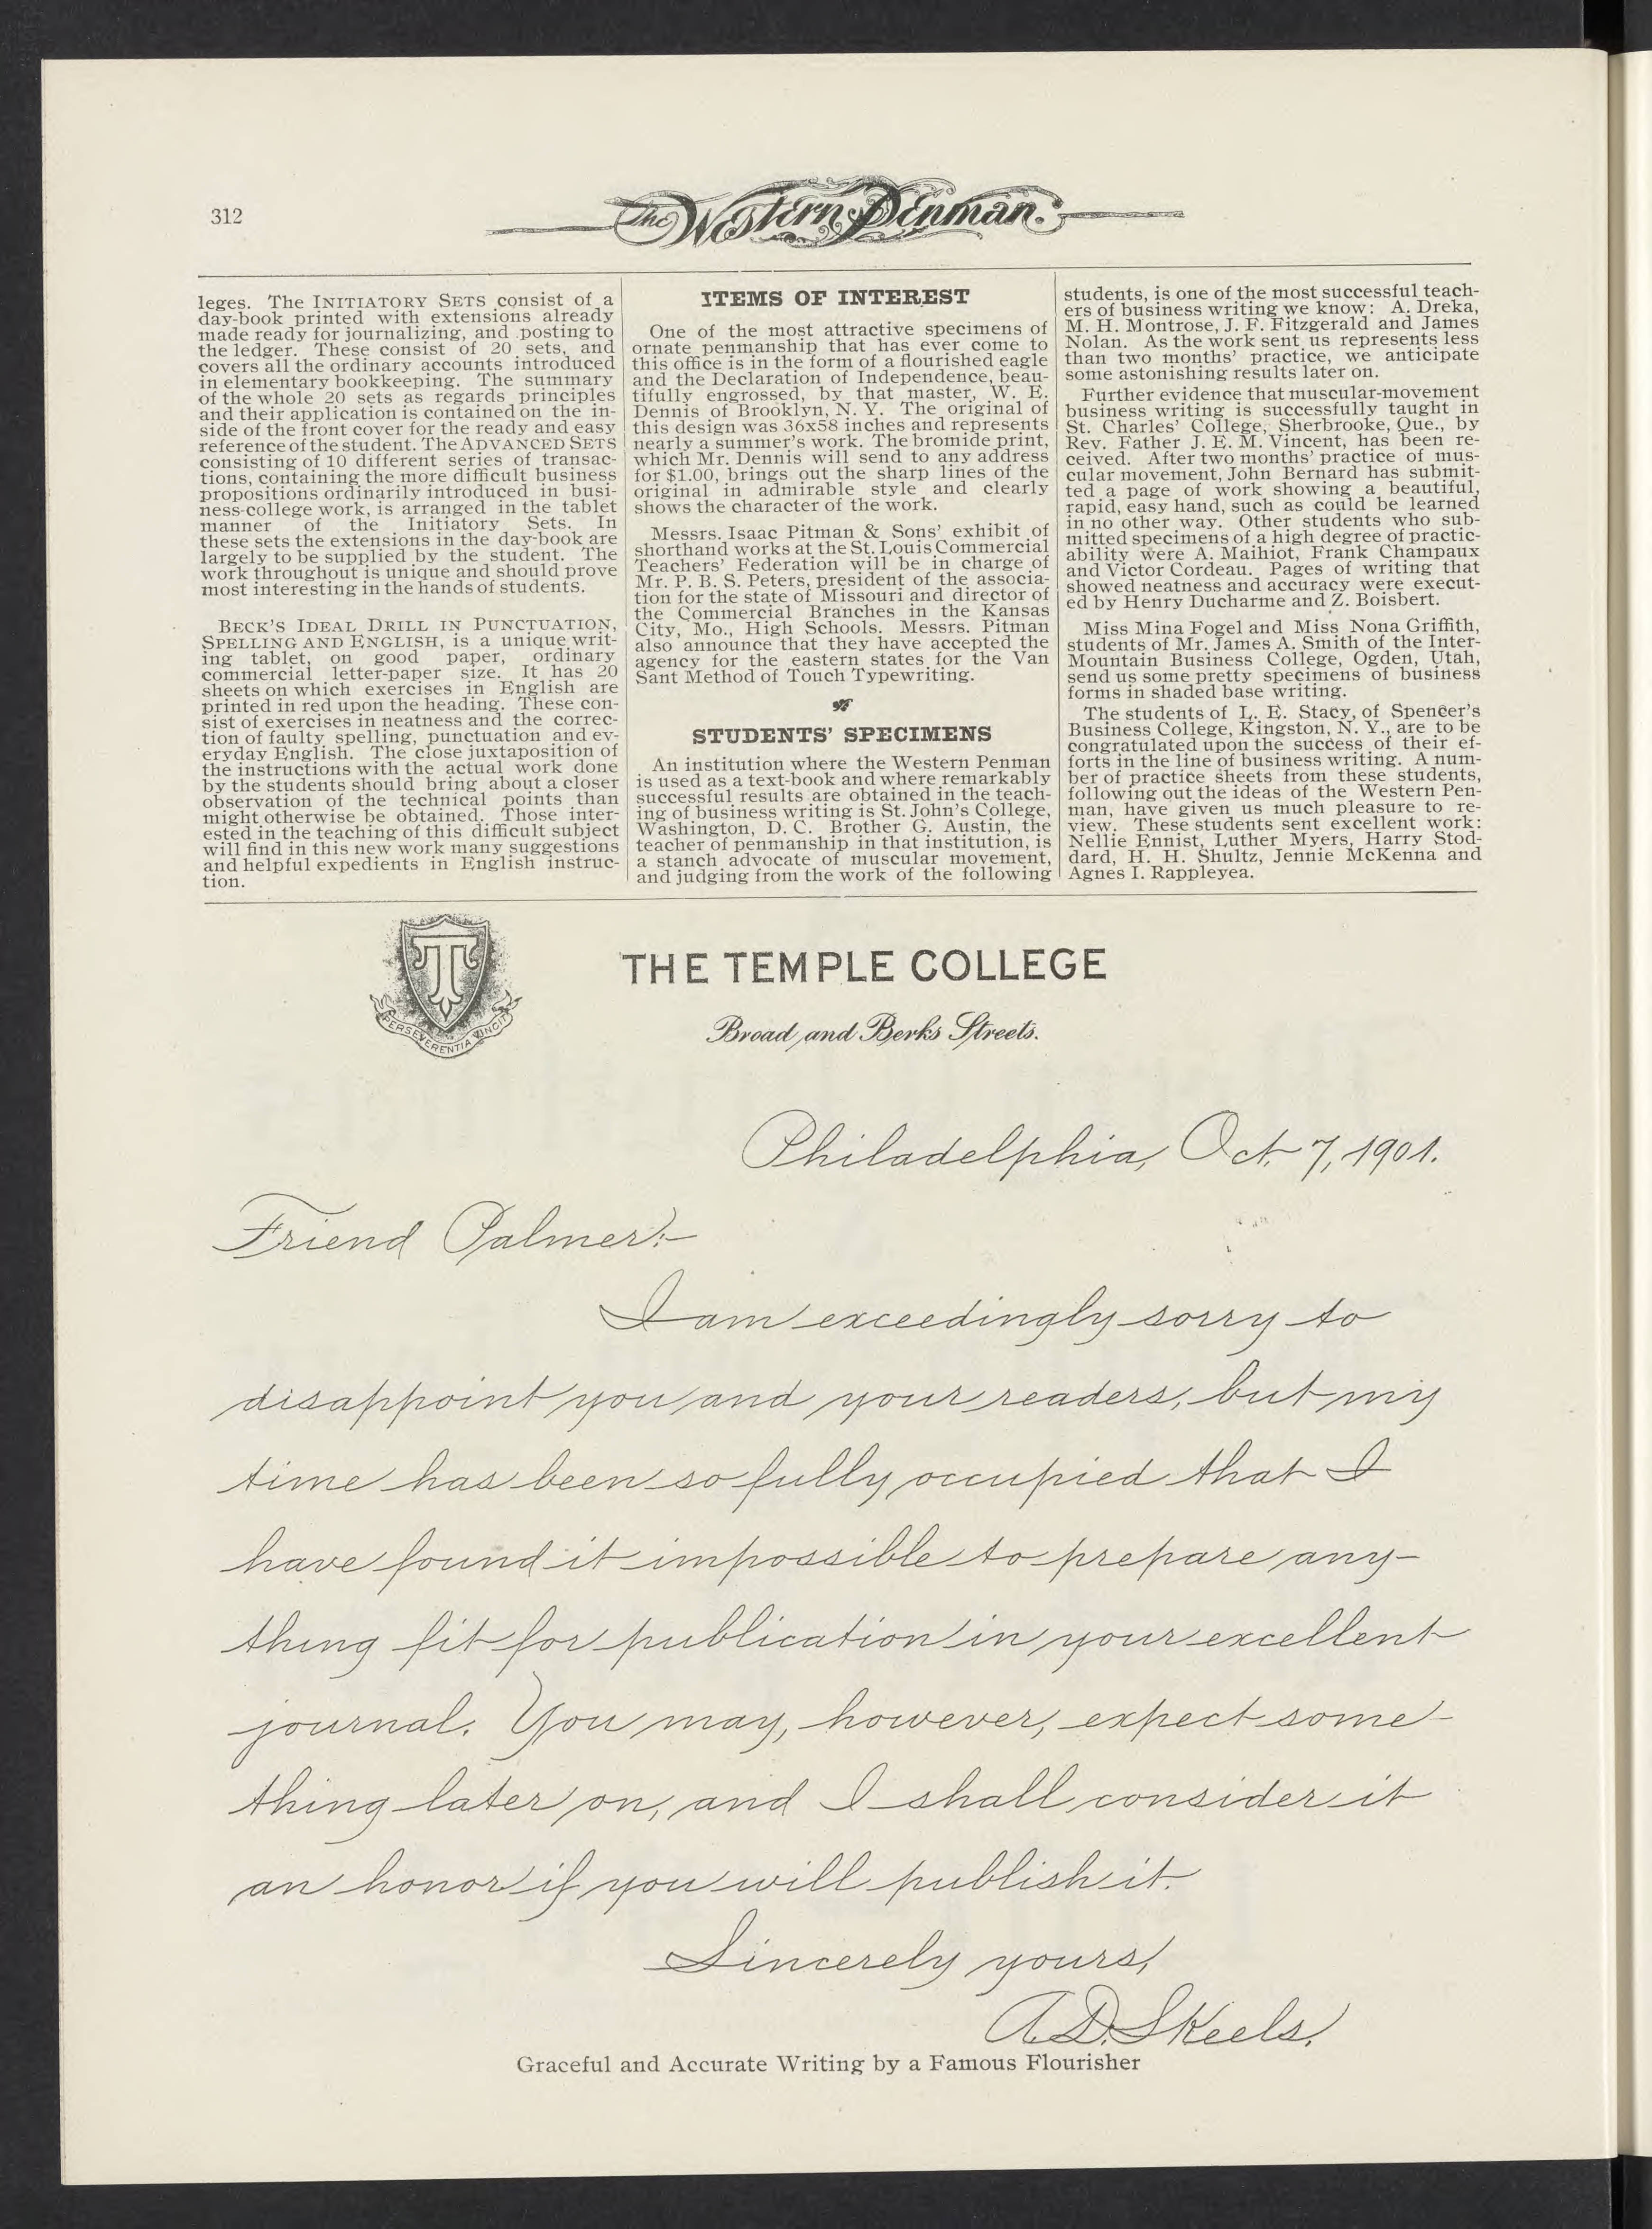 312
The Western Penman.
leges. The INITIATORY SETS consist of a
day-book printed with extensions already
made ready for journalizing, and posting to
the ledger. These consist of 20 sets, and
covers all the ordinary accounts introduced
in elementary bookkeeping. The summary
of the whole 20 sets as regards principles
and their application is contained on the in-
side of the front cover for the ready and easy
reference of the student. The ADVANCED SETS
consisting of 10 different series of transac-
tions, containing the more difficult business
propositions ordinarily introduced in busi-
ness-college work, is arranged in the tablet
manner of the Initiatory Sets. In
these sets the extensions in the day-book are
largely to be supplied by the student. The
work throughout is unique and should prove
most interesting in the hands of students.
BECK'S IDEAL DRILL IN PUNCTUATION,
SPELLING AND ENGLISH, is a unique writ-
ing tablet, on good paper, ordinary
commercial letter-paper size. It has 20
sheets on which exercises in English are
printed in red upon the heading. These con-
sist of exercises in neatness and the correc-
tion of faulty spelling, punctuation and ev-
eryday English. The close juxtaposition of
the instructions with the actual work done
by the students should bring about a closer
observation of the technical points than
might otherwise be obtained. Those inter-
ested in the teaching of this difficult subject
will find in this new work many suggestions
and helpful expedients in English instruc-
tion.
ITEMS OF INTEREST
One of the most attractive specimens of
ornate penmanship that has ever come to
this office is in the form of a flourished eagle
and the Declaration of Independence, beau-
tifully engrossed, by that master, W. E.
Dennis of Brooklyn, N. Y. The original of
this design was 36x58 inches and represents
nearly a summer's work. The bromide print,
which Mr. Dennis will send to any address
for $1.00, brings out the sharp lines of the
original in admirable style and clearly
shows the character of the work.
Messrs. Isaac Pitman & Sons' exhibit of
shorthand works at the St. Louis Commercial
Teachers' Federation will be in charge of
Mr. P. B. S. Peters, president of the associa-
tion for the state of Missouri and director of
the Commercial Branches in the Kansas
City, Mo., High Schools. Messrs. Pitman
also announce that they have accepted the
agency for the eastern states for the Van
Sant Method of Touch Typewriting.
STUDENTS' SPECIMENS
An institution where the Western Penman
is used as a text-book and where remarkably
successful results are obtained in the teach-
ing of business writing is St. John's College,
Washington, D. C. Brother G. Austin, the
teacher of penmanship in that institution, is
a stanch advocate of muscular movement,
and judging from the work of the following
students, is one of the most successful teach-
ers of business writing we know: A. Dreka,
M. H. Montrose, J. F. Fitzgerald and James
Nolan. As the work sent us represents less
than two months' practice, we anticipate
some astonishing results later on.
Further evidence that muscular-movement
business writing is successfully taught in
St. Charles' College, Sherbrooke, Que., by
Rev. Father J. E. M. Vincent, has been re-
ceived. After two months' practice of mus-
cular movement, John Bernard has submit-
ted a page of work showing a beautiful,
rapid, easy hand, such as could be learned
in no other way. Other students who sub-
mitted specimens of a high degree of practic-
ability were A. Maihiot, Frank Champaux
and Victor Cordeau. Pages of writing that
showed neatness and accuracy were execut-
ed by Henry Ducharme and Z. Boisbert.
Miss Mina Fogel and Miss Nona Griffith,
students of Mr. James A. Smith of the Inter-
Mountain Business College, Ogden, Utah,
send us some pretty specimens of business
forms in shaded base writing.
The students of L. E. Stacy, of Spencer's
Business College, Kingston, N. Y., are to be
congratulated upon the success of their ef-
forts in the line of business writing. A num-
ber of practice sheets from these students,
following out the ideas of the Western Pen-
man, have given us much pleasure to re-
view. These students sent excellent work:
Nellie Ennist, Luther Myers, Harry Stod-
dard, H. H. Shultz, Jennie McKenna and
Agnes I. Rappleyea.
T
PERSEVERENTIA VINCIT
THE TEMPLE COLLEGE
Broad and Berks Streets.
Philadelphia, Oct. 7, 1901.
Friend Palmer:-
I am exceedingly sorry to
disappoint you and your readers, but my
time has been so fully occupied that I
have found it impossible to prepare any-
thing fit for publication in your excellent
journal. You may, however, expect some-
thing later on, and I shall consider it
an honor if you will publish it.
Sincerely yours,
A. D. Skeels.
Graceful and Accurate Writing by a Famous Flourisher